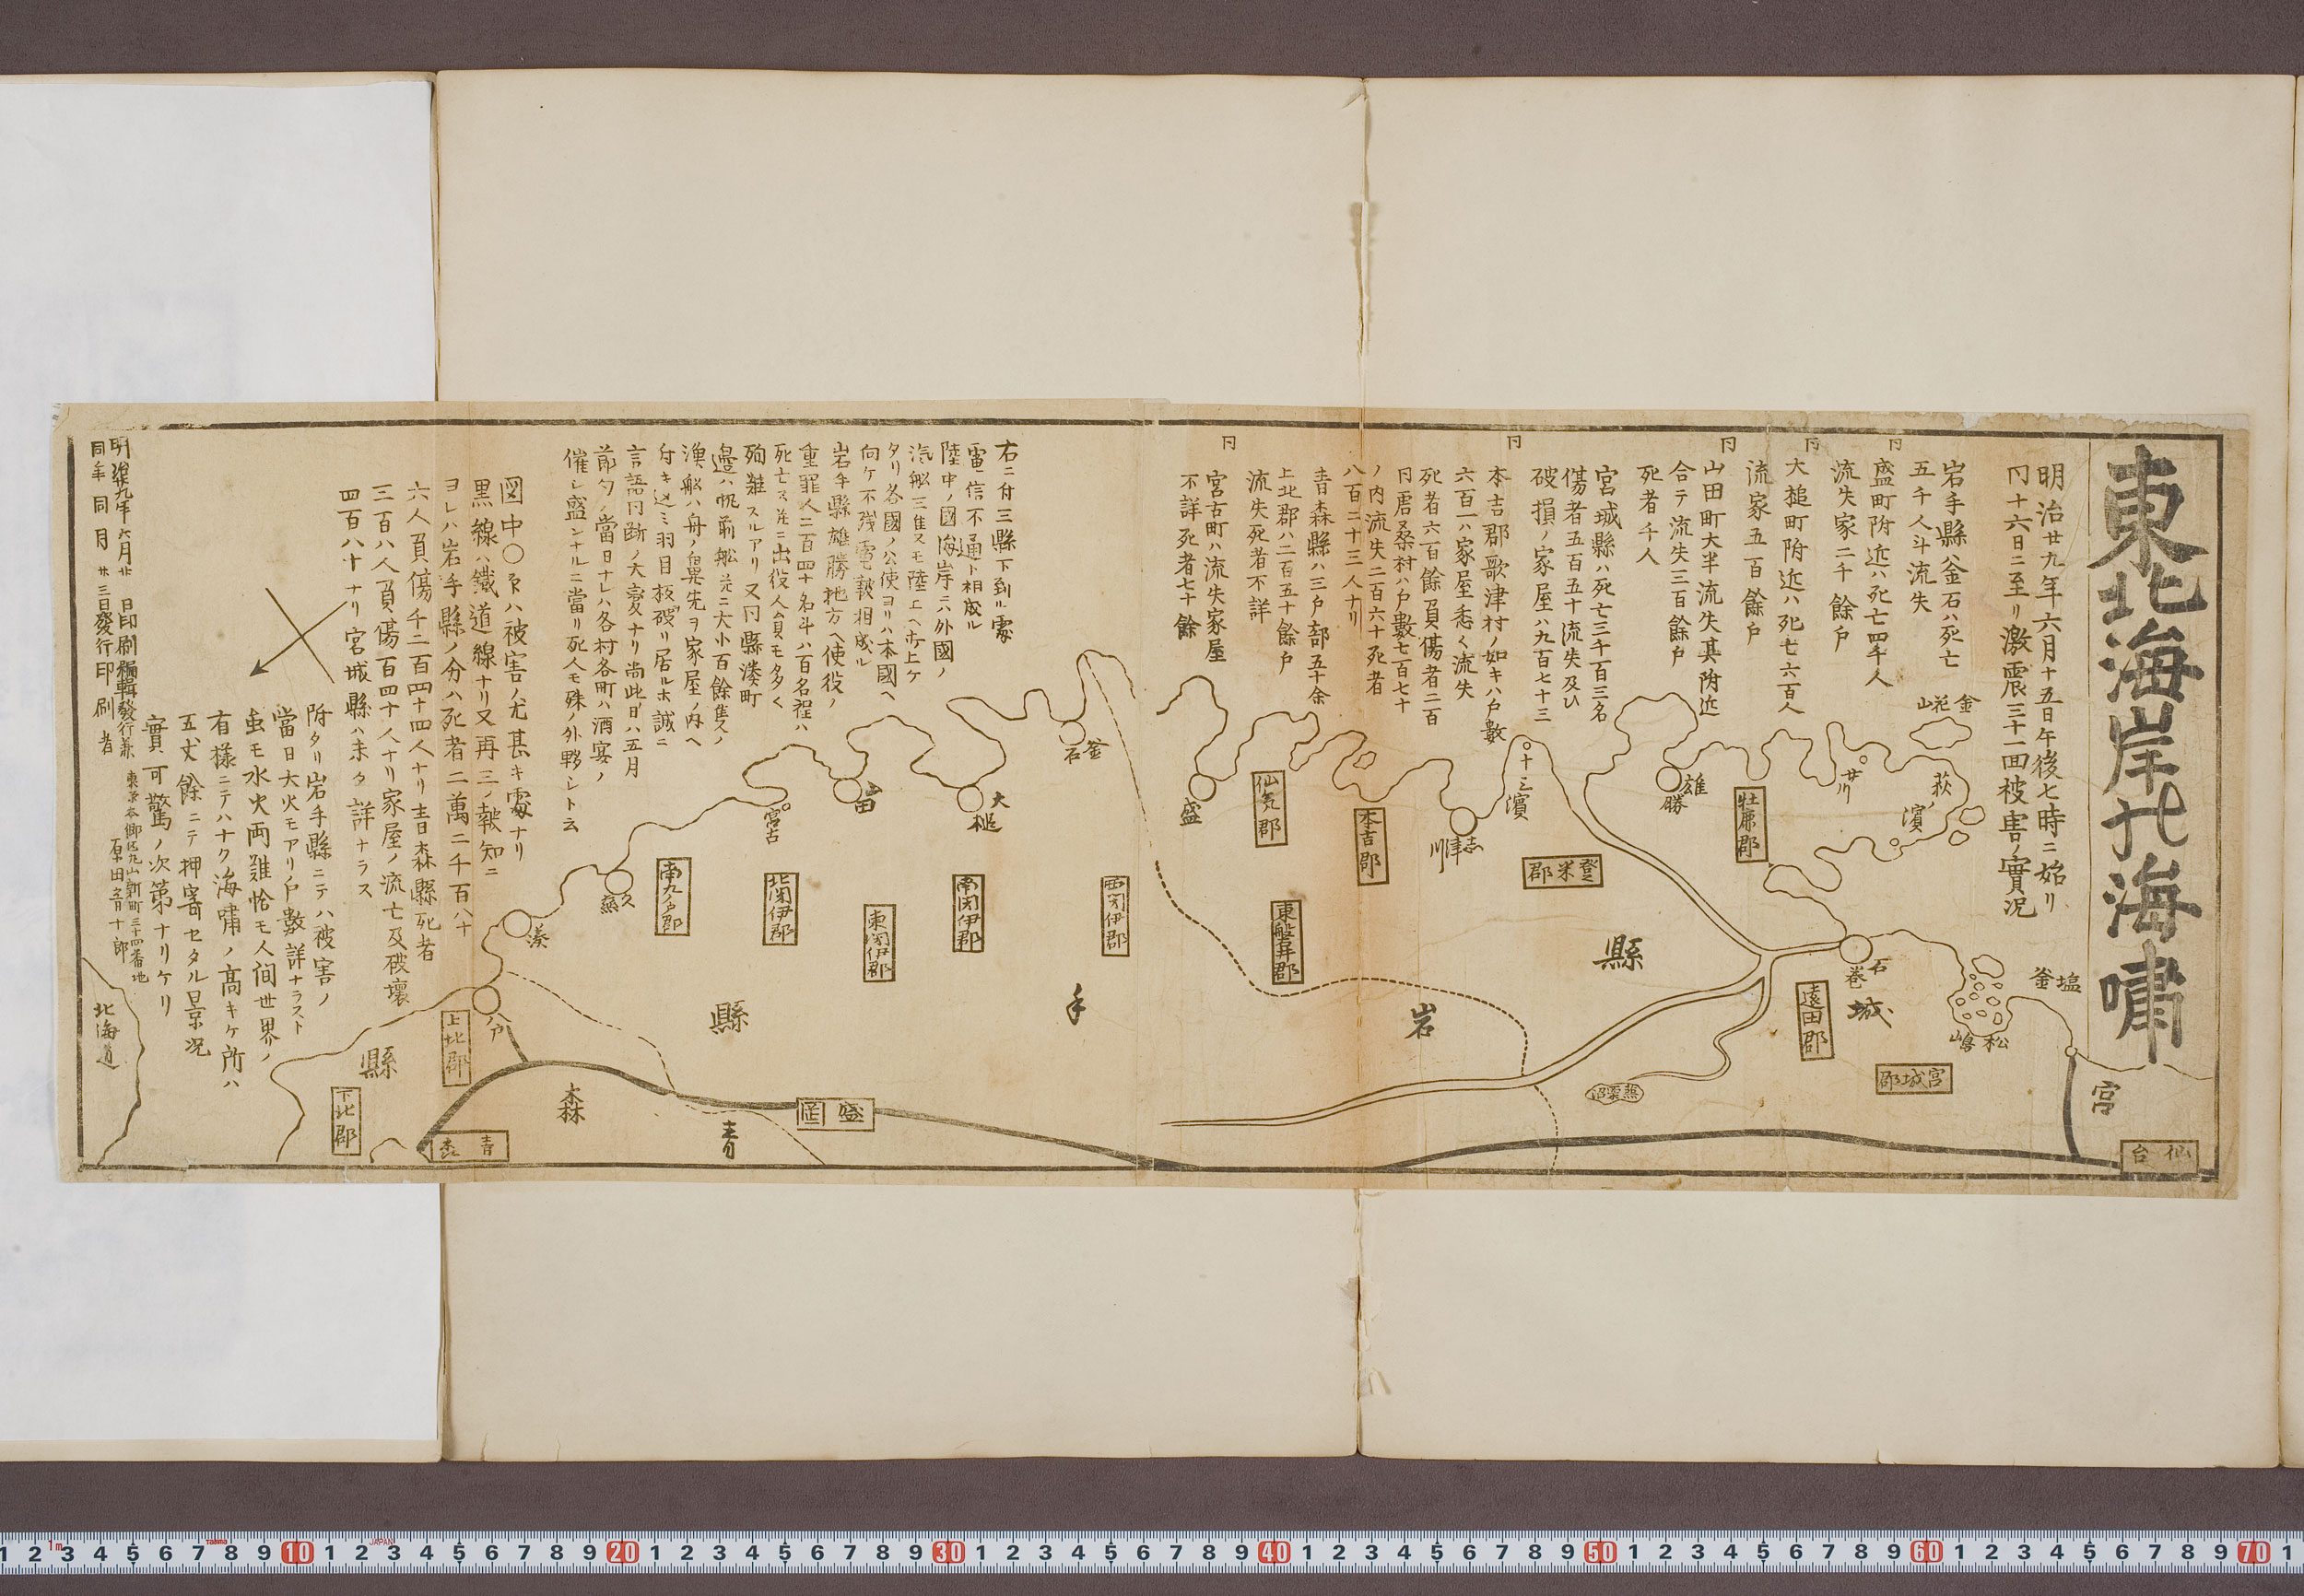 東北海岸大海嘯
明治廿九年六月十五日午後七時ニ始リ
同十六日ニ至リ激震三十一回被害ノ實況
岩手縣ハ釜石ハ死亡
五千人斗流失
同
盛町附近ハ死亡四千人
流失家二千餘戸
同
大槌町附近ハ死亡六百人
流家五百餘戸
同
山田町大半流失其附近
合テ流失三百餘戸
死者千人
宮城縣ハ死亡三千百三名
傷者五百五十流失及ひ
破損ノ家屋ハ九百七十三
同
本吉郡歌津村ノ如キハ戸數
六百一ハ家屋悉く流失
死者六百餘負傷者二百
同唐桑村ハ戸數七百七十
ノ内流失二百六十死者
八百二十三人ナリ
青森縣ハ三戸部五十余
上北郡ハ二百五十餘戸
流失死者不詳
同
宮古町ハ流失家屋
不詳死者七十餘
右ニ付三縣下到ル處
電信不通ト相成ル
陸中ノ國海岸ニハ外國ノ
汽船三隻スモ陸上ヘ赤上ケ
タリ各國ノ公使ヨリハ本國ヘ
向ケ不残電報相成ル
岩手縣雄勝地方ヘ使役ノ
重罪人二百四十名斗ハ百名程ハ
死亡ス並ニ出役人員モ多く
殉難スルアリ又同縣湊町
邊ハ帆前船並ニ大小百餘隻ノ
漁船ハ舟ノ舳先ヲ家屋ノ内ヘ
付キ込ミ羽目板破リ居ルホ誠ニ
言語同断ノ大変ナリ尚此日ハ五月
節句ノ當日ナレハ各村各町ハ酒宴ノ
催し盛ンナルニ當リ死人モ殊ノ外夥シト云
図中〇印ハ被害ノ尤甚キ處ナリ
黒線ハ鐵道線ナリ又再三ノ報知ニ
ヨレハ岩手縣ノ分ハ死者二萬二千百八十
六人負傷千二百四十四人ナリ青森縣死者
三百八人負傷百四十人ナリ家屋ノ流亡及破壊
四百八十ナリ宮城縣ハ未タ詳ナラス
附タリ岩手縣ニテハ被害ノ
當日大火モアリ戸數詳ナラスト
虫モ水火両難恰モ人间世界ノ
有様ニテハナク海嘯ノ高キケ所ハ
五丈餘ニテ押寄セタル景况
實可驚ノ次第ナリケリ
明治廿九年六月廿 日印刷編輯發行兼
同年同月廿三日發行印刷者
東京本郷区丸山新町三十四番地
金花山
荻ノ濱
廿川
牡鹿郡
雄勝
十三濱
登米郡
志津川
本吉郡
仙気郡
盛
東磐井郡
縣
石巻
城
遠田郡
塩釜
松嶋
宮城郡
宮
仙台
岩
釜石
西閉伊郡
手
大槌
南閉伊郡
東閉伊郡
山田
宮古
北閉伊郡
縣
盛岡
南九戸郡
久慈
湊
八戸
上北郡
森
青
縣
下北郡
青森
北海道